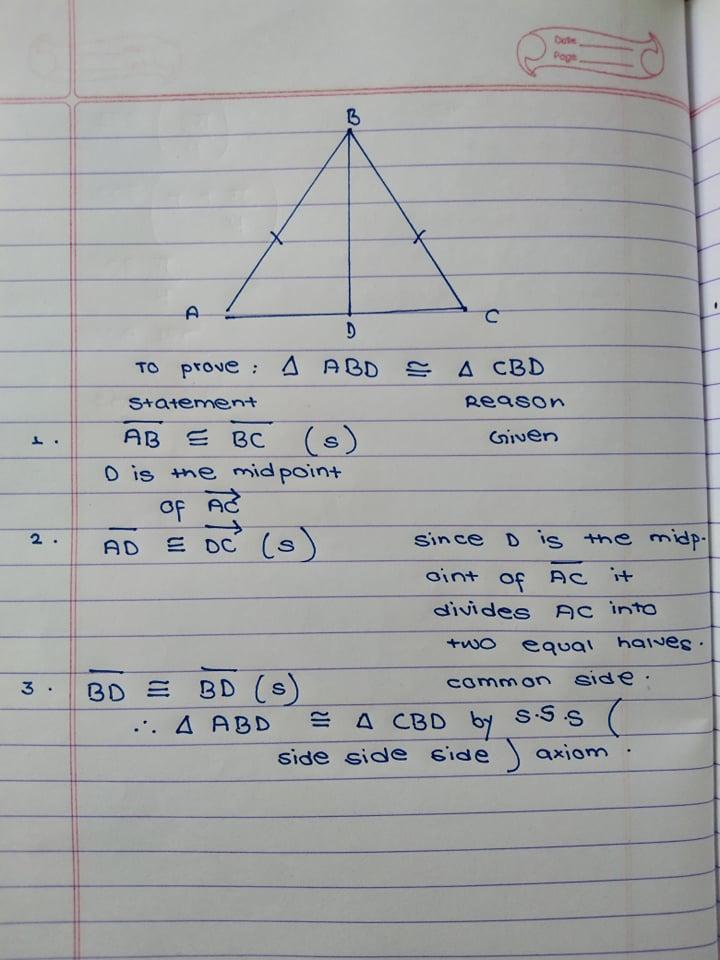 Date
Page
B
A
C
D
To prove : Δ ABD ≅ Δ CBD
Statement Reason
1. A̅B̅ ≡ B̅C̅ (s) Given
D is the midpoint
of A⃗C⃗
2. A̅D̅ ≡ D⃗C⃗ (s) since D is the midp-
oint of A̅C̅ it
divides AC into
two equal halves.
3. B̅D̅ ≡ B̅D̅ (s) common side.
∴ Δ ABD ≅ Δ CBD by s.s.s (
side side side ) axiom.